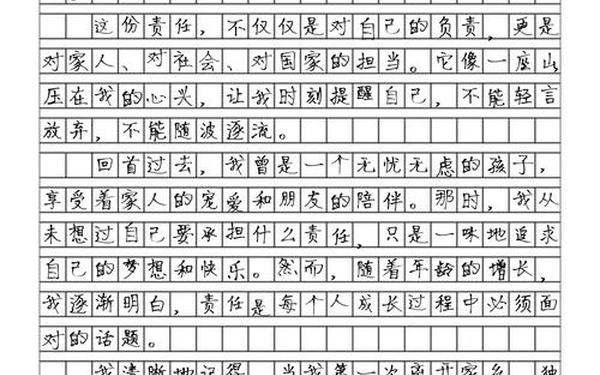 这份责任，不仅仅是对自己的负责，更是
对家人、对社会、对国家的担当。它像一座山
压在我的心头，让我时刻提醒自己，不能轻言
放弃，不能随波逐流。
回首过去，我曾是一个无忧无虑的孩子，
享受着家人的宠爱和朋友的陪伴。那时，我从
未想过自己要承担什么责任，只是一味地追求
自己的梦想和快乐。然而，随着年龄的增长，
我逐渐明白，责任是每个人成长过程中必须面
对的话题。
我清晰地记得，当我第一次离开家乡，独